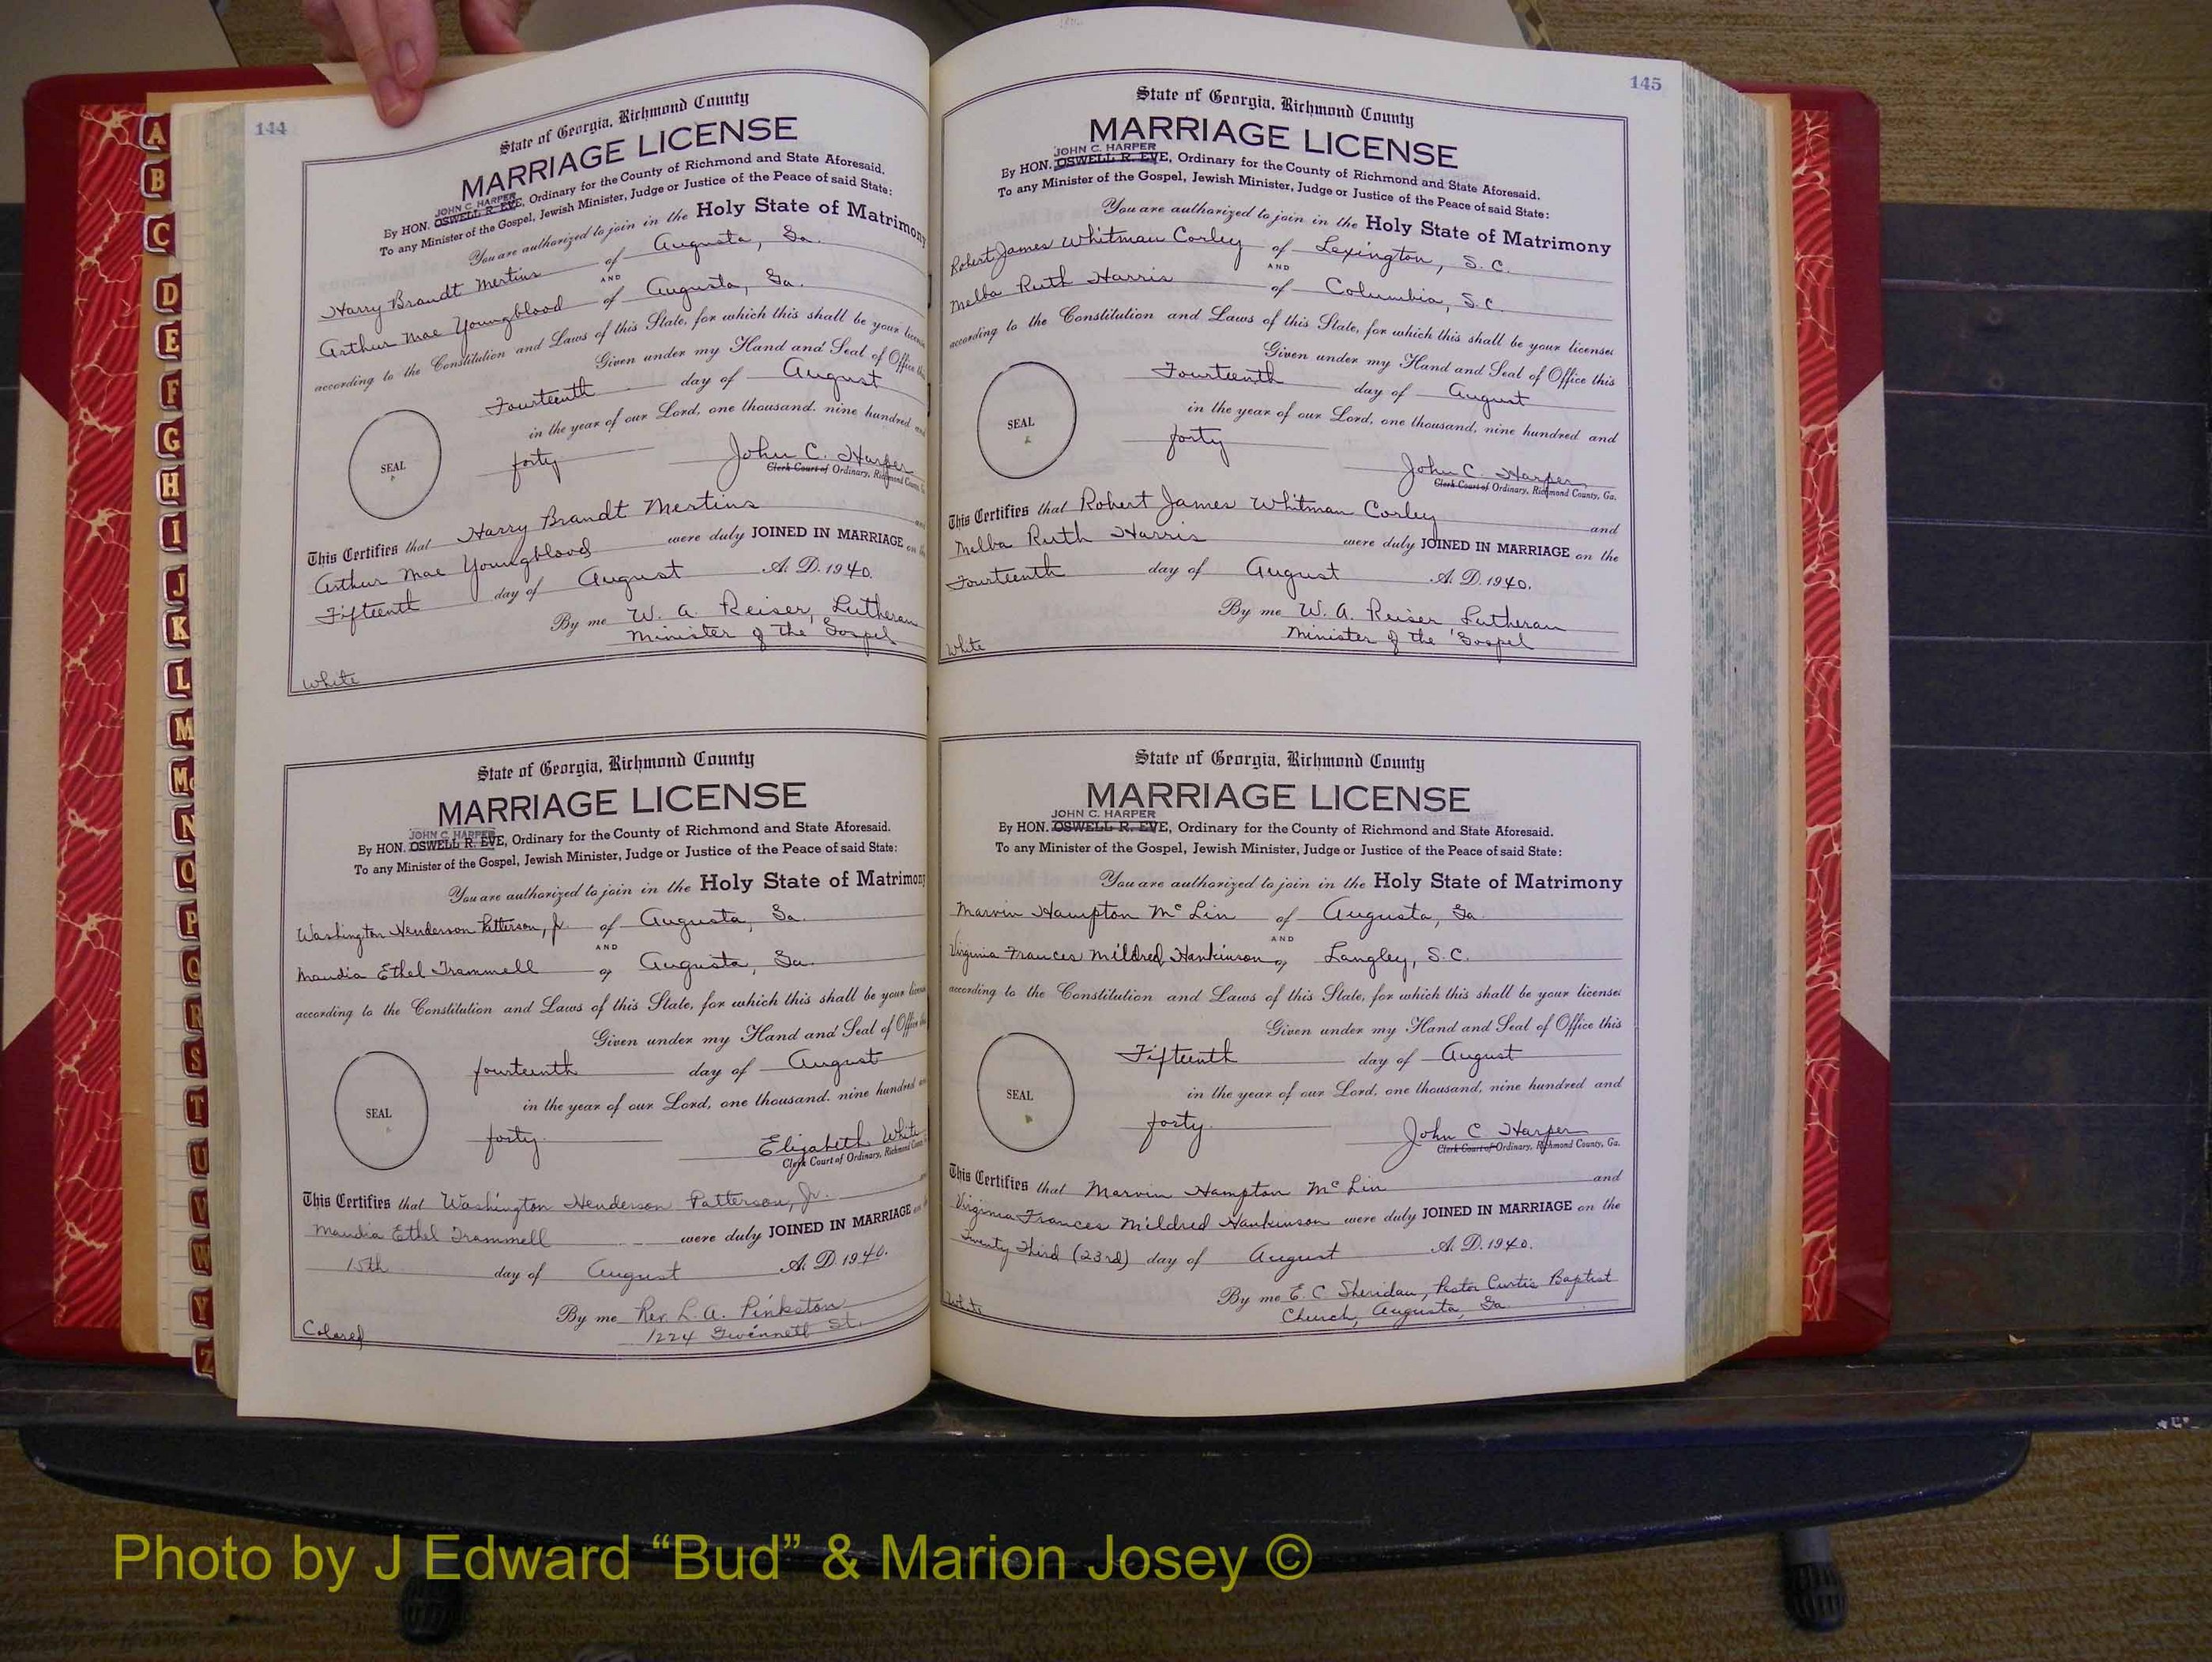 144
State of Georgia, Richmond County
MARRIAGE LICENSE
JOHN C. HARPER
By HON. OSWELL R. EVE, Ordinary for the County of Richmond and State Aforesaid.
To any Minister of the Gospel, Jewish Minister, Judge or Justice of the Peace of said State:
You are authorized to join in the Holy State of Matrimony
Harry Brandt Mertins of Augusta, Ga.
AND
Arthur Mae Youngblood of Augusta, Ga.
according to the Constitution and Laws of this State, for which this shall be your license
Given under my Hand and Seal of Office this
Fourteenth day of August
in the year of our Lord, one thousand, nine hundred and
SEAL
forty John C. Harper
Clerk Court of Ordinary, Richmond County, G
This Certifies that Harry Brandt Mertins and
Arthur Mae Youngblood were duly JOINED IN MARRIAGE on th
Fifteenth day of August A. D. 1940.
By me W. A. Reiser, Lutheran
Minister of the Gospel
White
State of Georgia, Richmond County
MARRIAGE LICENSE
JOHN C. HARPER
By HON. OSWELL R. EVE, Ordinary for the County of Richmond and State Aforesaid.
To any Minister of the Gospel, Jewish Minister, Judge or Justice of the Peace of said State:
You are authorized to join in the Holy State of Matrimony
Washington Henderson Patterson, Jr. of Augusta, Ga.
AND
Maudia Ethel Trammell of Augusta, Ga.
according to the Constitution and Laws of this State, for which this shall be your license
Given under my Hand and Seal of Office this
fourteenth day of August
in the year of our Lord, one thousand, nine hundred an
SEAL
forty. Elizabeth White
Clerk Court of Ordinary, Richmond County
This Certifies that Washington Henderson Patterson, Jr. and
Maudia Ethel Trammell were duly JOINED IN MARRIAGE on th
15th day of August A. D. 1940.
By me Rev. L. A. Pinkston
1224 Gwinnett St.
Colored
145
State of Georgia, Richmond County
MARRIAGE LICENSE
JOHN C. HARPER
By HON. OSWELL R. EVE, Ordinary for the County of Richmond and State Aforesaid.
To any Minister of the Gospel, Jewish Minister, Judge or Justice of the Peace of said State:
You are authorized to join in the Holy State of Matrimony
Robert James Whitman Corley of Lexington, S. C.
AND
Melba Ruth Harris of Columbia, S. C.
according to the Constitution and Laws of this State, for which this shall be your license:
Given under my Hand and Seal of Office this
Fourteenth day of August
in the year of our Lord, one thousand, nine hundred and
SEAL
forty John C. Harper
Clerk Court of Ordinary, Richmond County, Ga.
This Certifies that Robert James Whitman Corley and
Melba Ruth Harris were duly JOINED IN MARRIAGE on the
Fourteenth day of August A. D. 1940.
By me W. A. Reiser Lutheran
Minister of the Gospel
White
State of Georgia, Richmond County
MARRIAGE LICENSE
JOHN C. HARPER
By HON. OSWELL R. EVE, Ordinary for the County of Richmond and State Aforesaid.
To any Minister of the Gospel, Jewish Minister, Judge or Justice of the Peace of said State:
You are authorized to join in the Holy State of Matrimony
Marvin Hampton McLin of Augusta, Ga.
AND
Virginia Frances Mildred Hankinson of Langley, S. C.
according to the Constitution and Laws of this State, for which this shall be your license:
Given under my Hand and Seal of Office this
Fifteenth day of August
in the year of our Lord, one thousand, nine hundred and
SEAL
forty. John C Harper
Clerk Court of Ordinary, Richmond County, Ga.
This Certifies that Marvin Hampton McLin and
Virginia Frances Mildred Hankinson were duly JOINED IN MARRIAGE on the
Twenty Third (23rd) day of August A. D. 1940.
By me E. C Sheridan, Pastor Curtis Baptist
Church, Augusta, Ga.
White
A
B
C
D
E
F
G
H
I
J
K
L
M
Mc
N
O
P
Q
R
S
T
U
V
W
Y
Z
Photo by J Edward “Bud” & Marion Josey ©